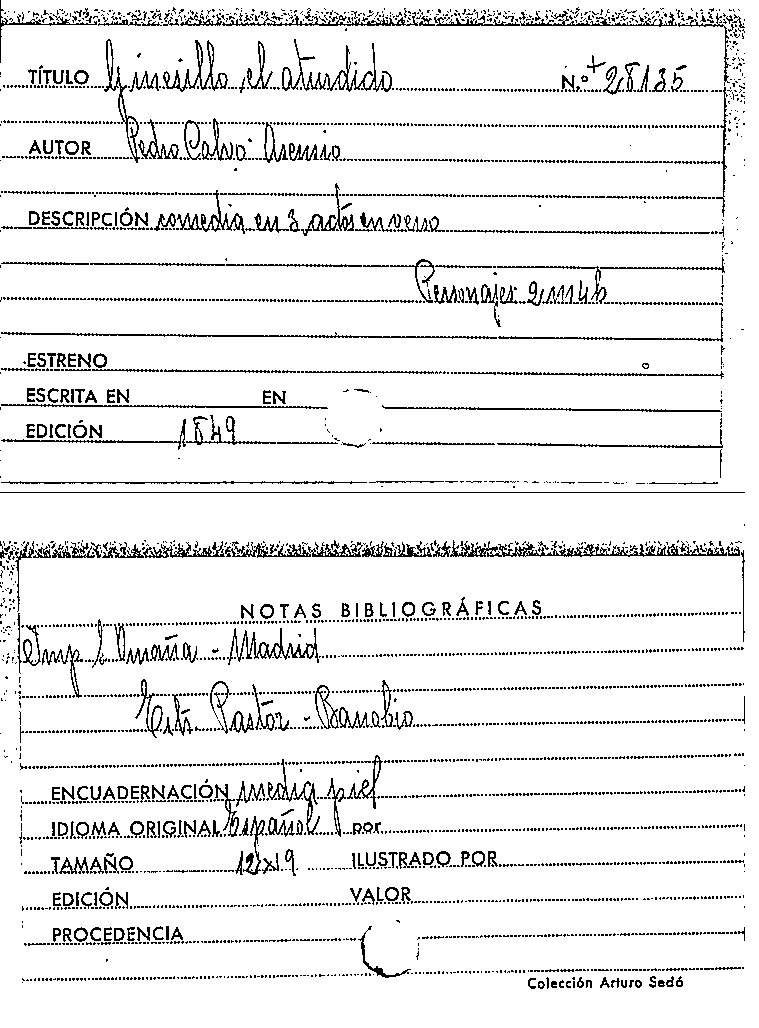 TÍTULO Ginesillo el aturdido N.º + 28135
AUTOR Pedro Calvo Asensio
DESCRIPCIÓN comedia en 3 actos en verso
Personajes 2 m 4 h
ESTRENO
ESCRITA EN EN
EDICIÓN 1849
NOTAS BIBLIOGRÁFICAS
Imp Omaña - Madrid
Pastor -
ENCUADERNACIÓN media piel
IDIOMA ORIGINAL Español por
TAMAÑO 12x19 ILUSTRADO POR
EDICIÓN VALOR
PROCEDENCIA
Colección Arturo Sedó